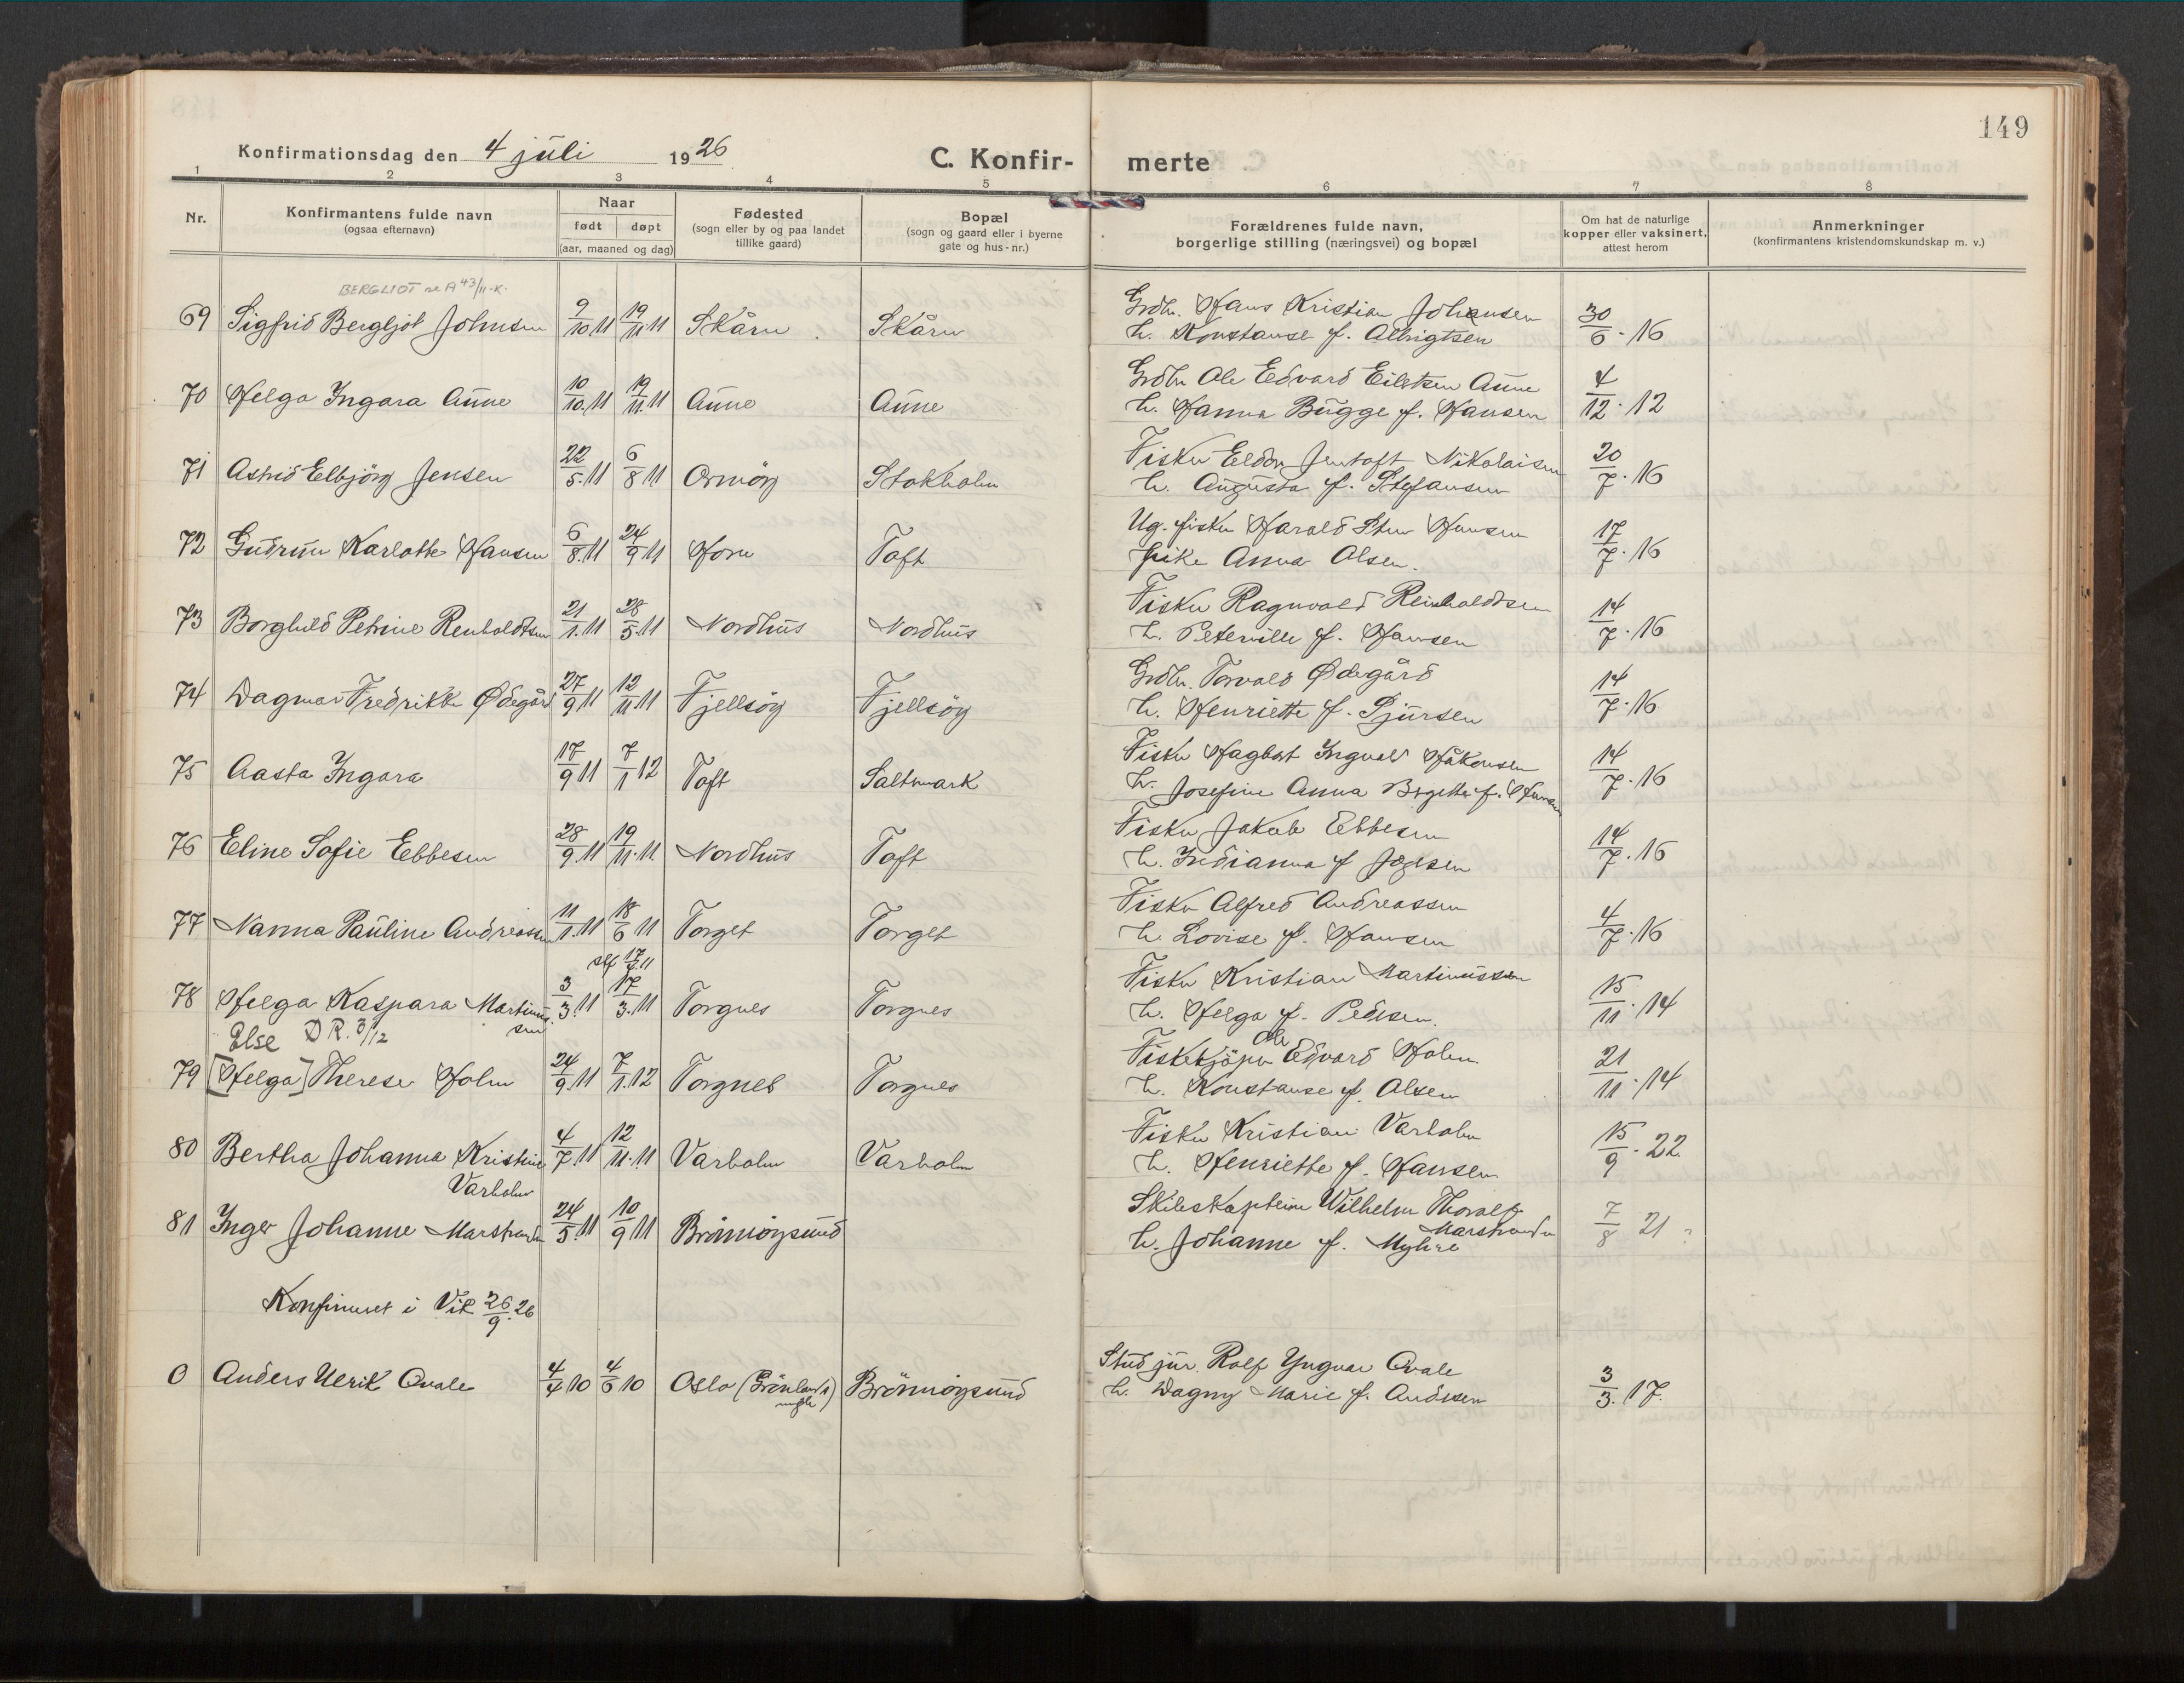 149
Konfirmationsdag den 4 juli 1926
C. Konfir- merte
1 2 3 4 5 6 7 8
Nr.
Konfirmantens fulde navn
(ogsaa efternavn)
Naar
født døpt
(aar, maaned og dag)
Fødested
(sogn eller by og paa landet
tillike gaard)
Bopæl
(sogn og gaard eller i byerne
gate og hus-nr.)
Forældrenes fulde navn,
borgerlige stilling (næringsvei) og bopæl
Om hat de naturlige
kopper eller vaksinert,
attest herom
Anmerkninger
(konfirmantens kristendomskundskap m. v.)
BERGLIOT se A 43/11.K.
69 Sigfrid Bergljot Johnsen 9/10 11 19/11 11 Skårn Skårn Grdbr. Hans Kristian Johansen 30/6 . 16
h. Konstanse f. Albrigtsen
70 Helga Ingara Aune 10/10. 11 19/11. 11 Aune Aune Grdbr Ole Edvard Eilertsen Aune 4/12 . 12
h. Hanna Bugge f. Hansen
71 Astrid Elbjörg Jensen 22/5. 11 6/8 11 Ormöy Stokholm Fisker Jentoft Nikolaisen 20/7 . 16
h. Augusta f. Stefansen
72 Gudrun Karlotte Hansen 6/8. 11 24/9 11 Horn Toft Ug. fisker Harald Hansen 17/7 . 16
pike Anna Olsen.
73 Borghild Petrine Renholdtsen 21/1. 11 28/5. 11 Nordhus Nordhus Fisker Ragnvald Reinholdtsen 14/7 . 16
h. Peternille f. Hansen
74 Dagmar Fredrikke Ødegård 27/9 11 12/11. 11 Fjellsöy Fjellsöy Grdbr. Torvald Ødegård 14/7 . 16
h. Henriette f. Sjursen
75 Aasta Ingara 17/9 11 7/1 12 Toft Saltmark Fisker Hagbart Ingvald Håkonsen 14/7 . 16
h. Josefine Anna Bergitte f. Hansen
76 Eline Sofie Ebbesen 28/9. 11 19/11. 11. Nordhus Toft Fisker Jakob Ebbesen 14/7 . 16
h. Indianna f
77 Nanna Pauline Andreassen 11/1. 11 18/6 11 Torget Torget Fisker Alfred Andreassen 4/7 . 16
h. Lovise f. Hansen
17/7 11
78 Helga Kaspara Martinussen 3/3. 11 17/3. 11 Torgnes Torgnes Fisker Kristian Martinussen 15/11 . 14
h. Helga f. Pedersen.
Else D R. 3/12
79 [Helga] Therese Holm 24/9. 11 7/1. 12 Torgnes Torgnes Fiskekjöper Ole Edvard Holm 21/11 . 14
h. Konstanse f. Olsen
80 Bertha Johanna Kristine 4/7. 11 12/11. 11 Varholm Varholm Fisker Kristian Varholm 15/9 . 22
Varholm h. Henriette f. Hansen
81 Inger Johanne Marstrander 24/5. 11 10/9 11 Brönnöysund Skibskaptein Wilhelm Thoralf 7/8 21
Marstrander
h. Johanne f. Myhre
Konfirmert i Vik 26/9. 26
0 Anders Ulrik Qvale 4/4 10 4/6 10 Oslo (Grönlands Brönnöysund Stud jur. Rolf Yngvar Qvale 3/3. 17.
mgh) h. Dagny Marie f. Andersen